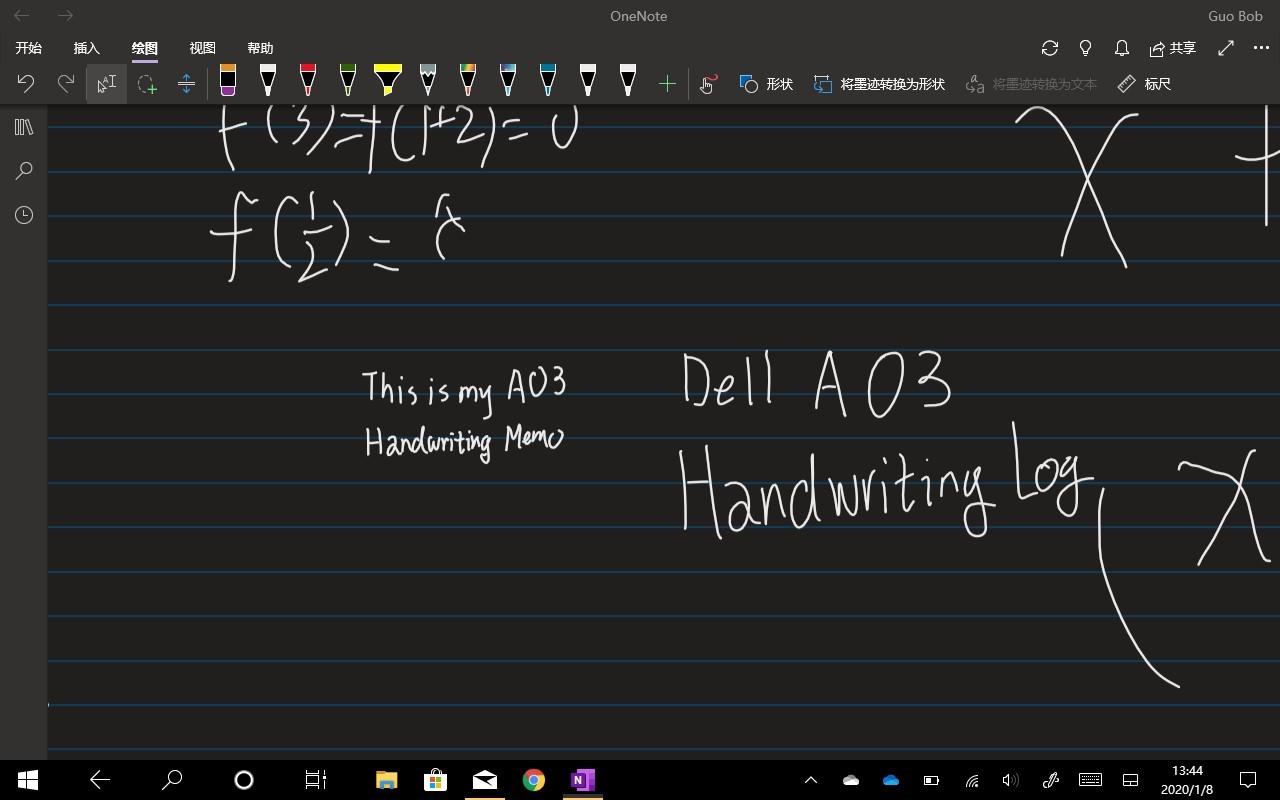 OneNote
Guo Bob
开始 插入 绘图 视图 帮助
共享
形状 将墨迹转换为形状 将墨迹转换为文本 标尺
f(3)=f(1+2)=0
f(1/2)=
X +
This is my A03
Handwriting Memo
Dell A03
Handwriting Log
( X
13:44
2020/1/8